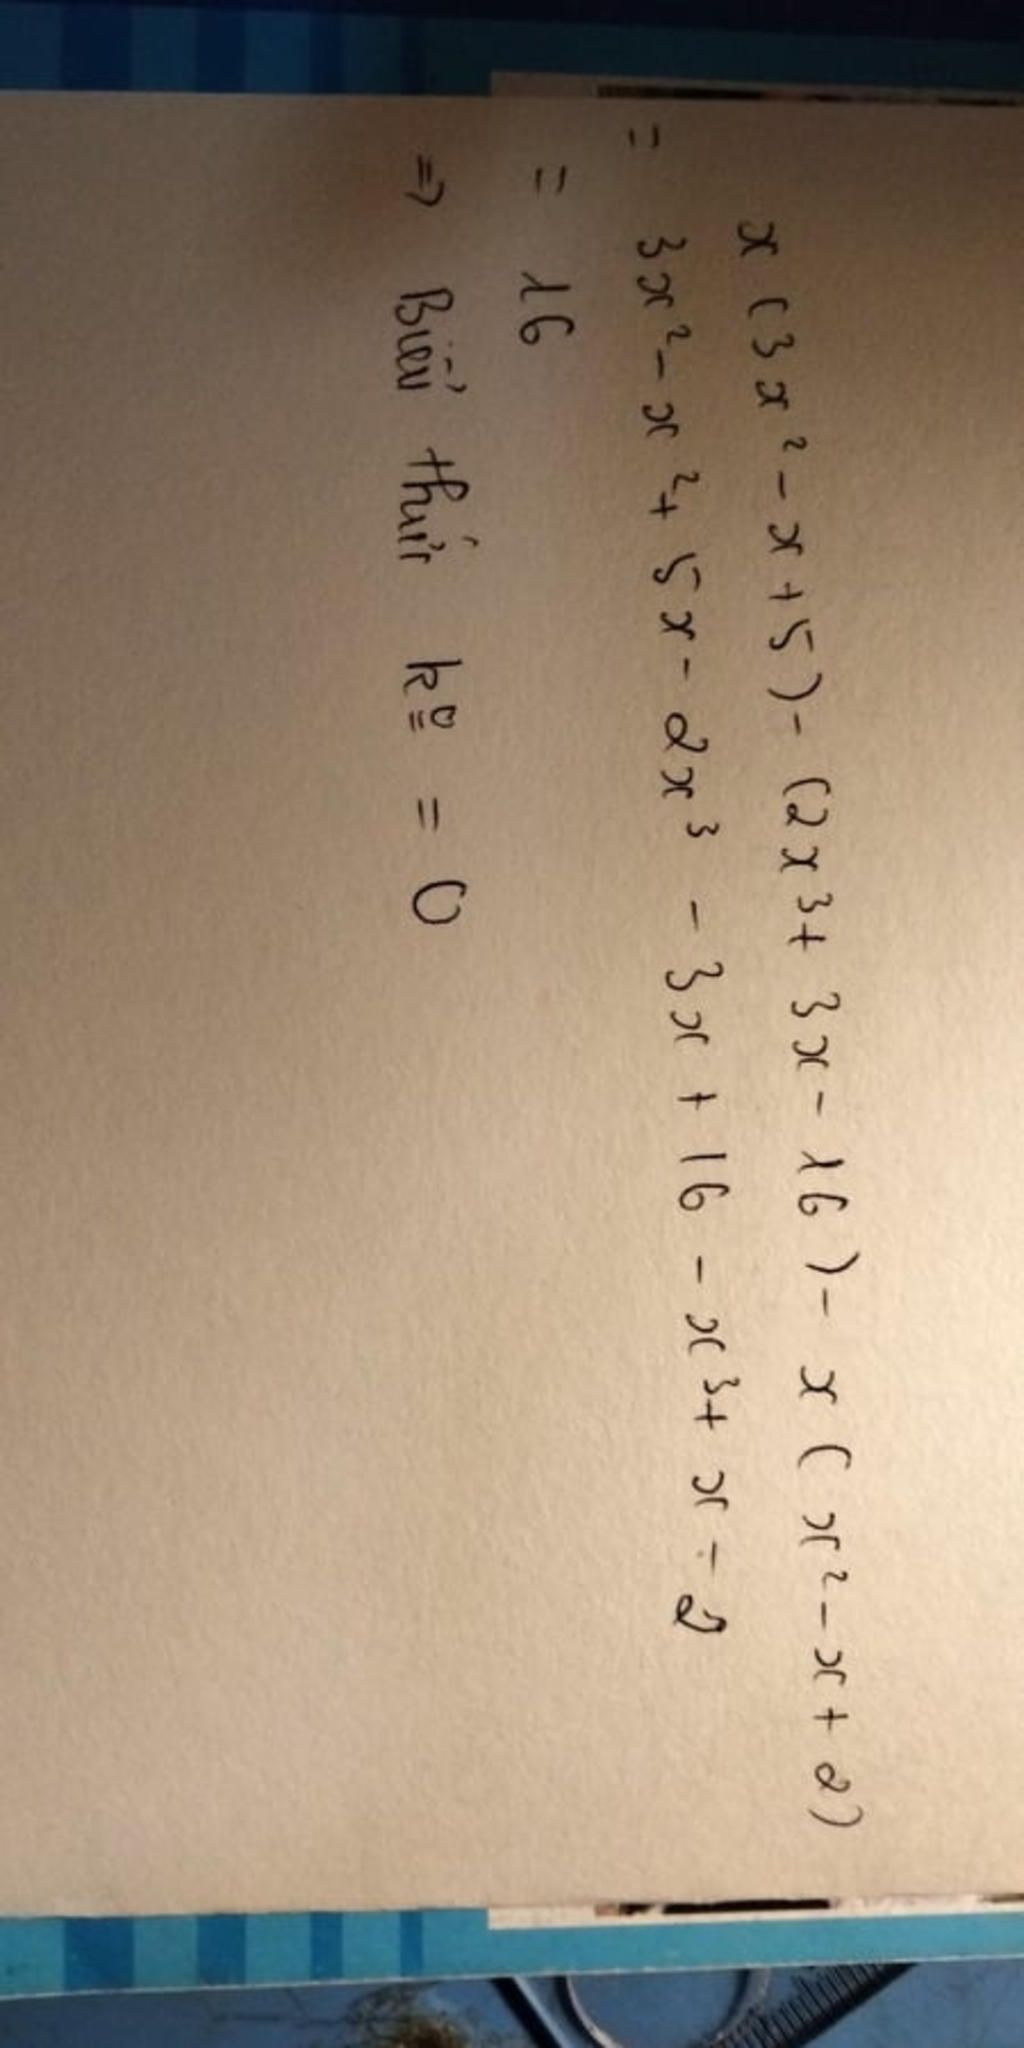 x(3x² - x + 5) - (2x³ + 3x - 16) - x(x² - x + 2)
= 3x² - x² + 5x - 2x³ - 3x + 16 - x³ + x - 2
= 16
⇒ Biểu thức k⁰ = 0